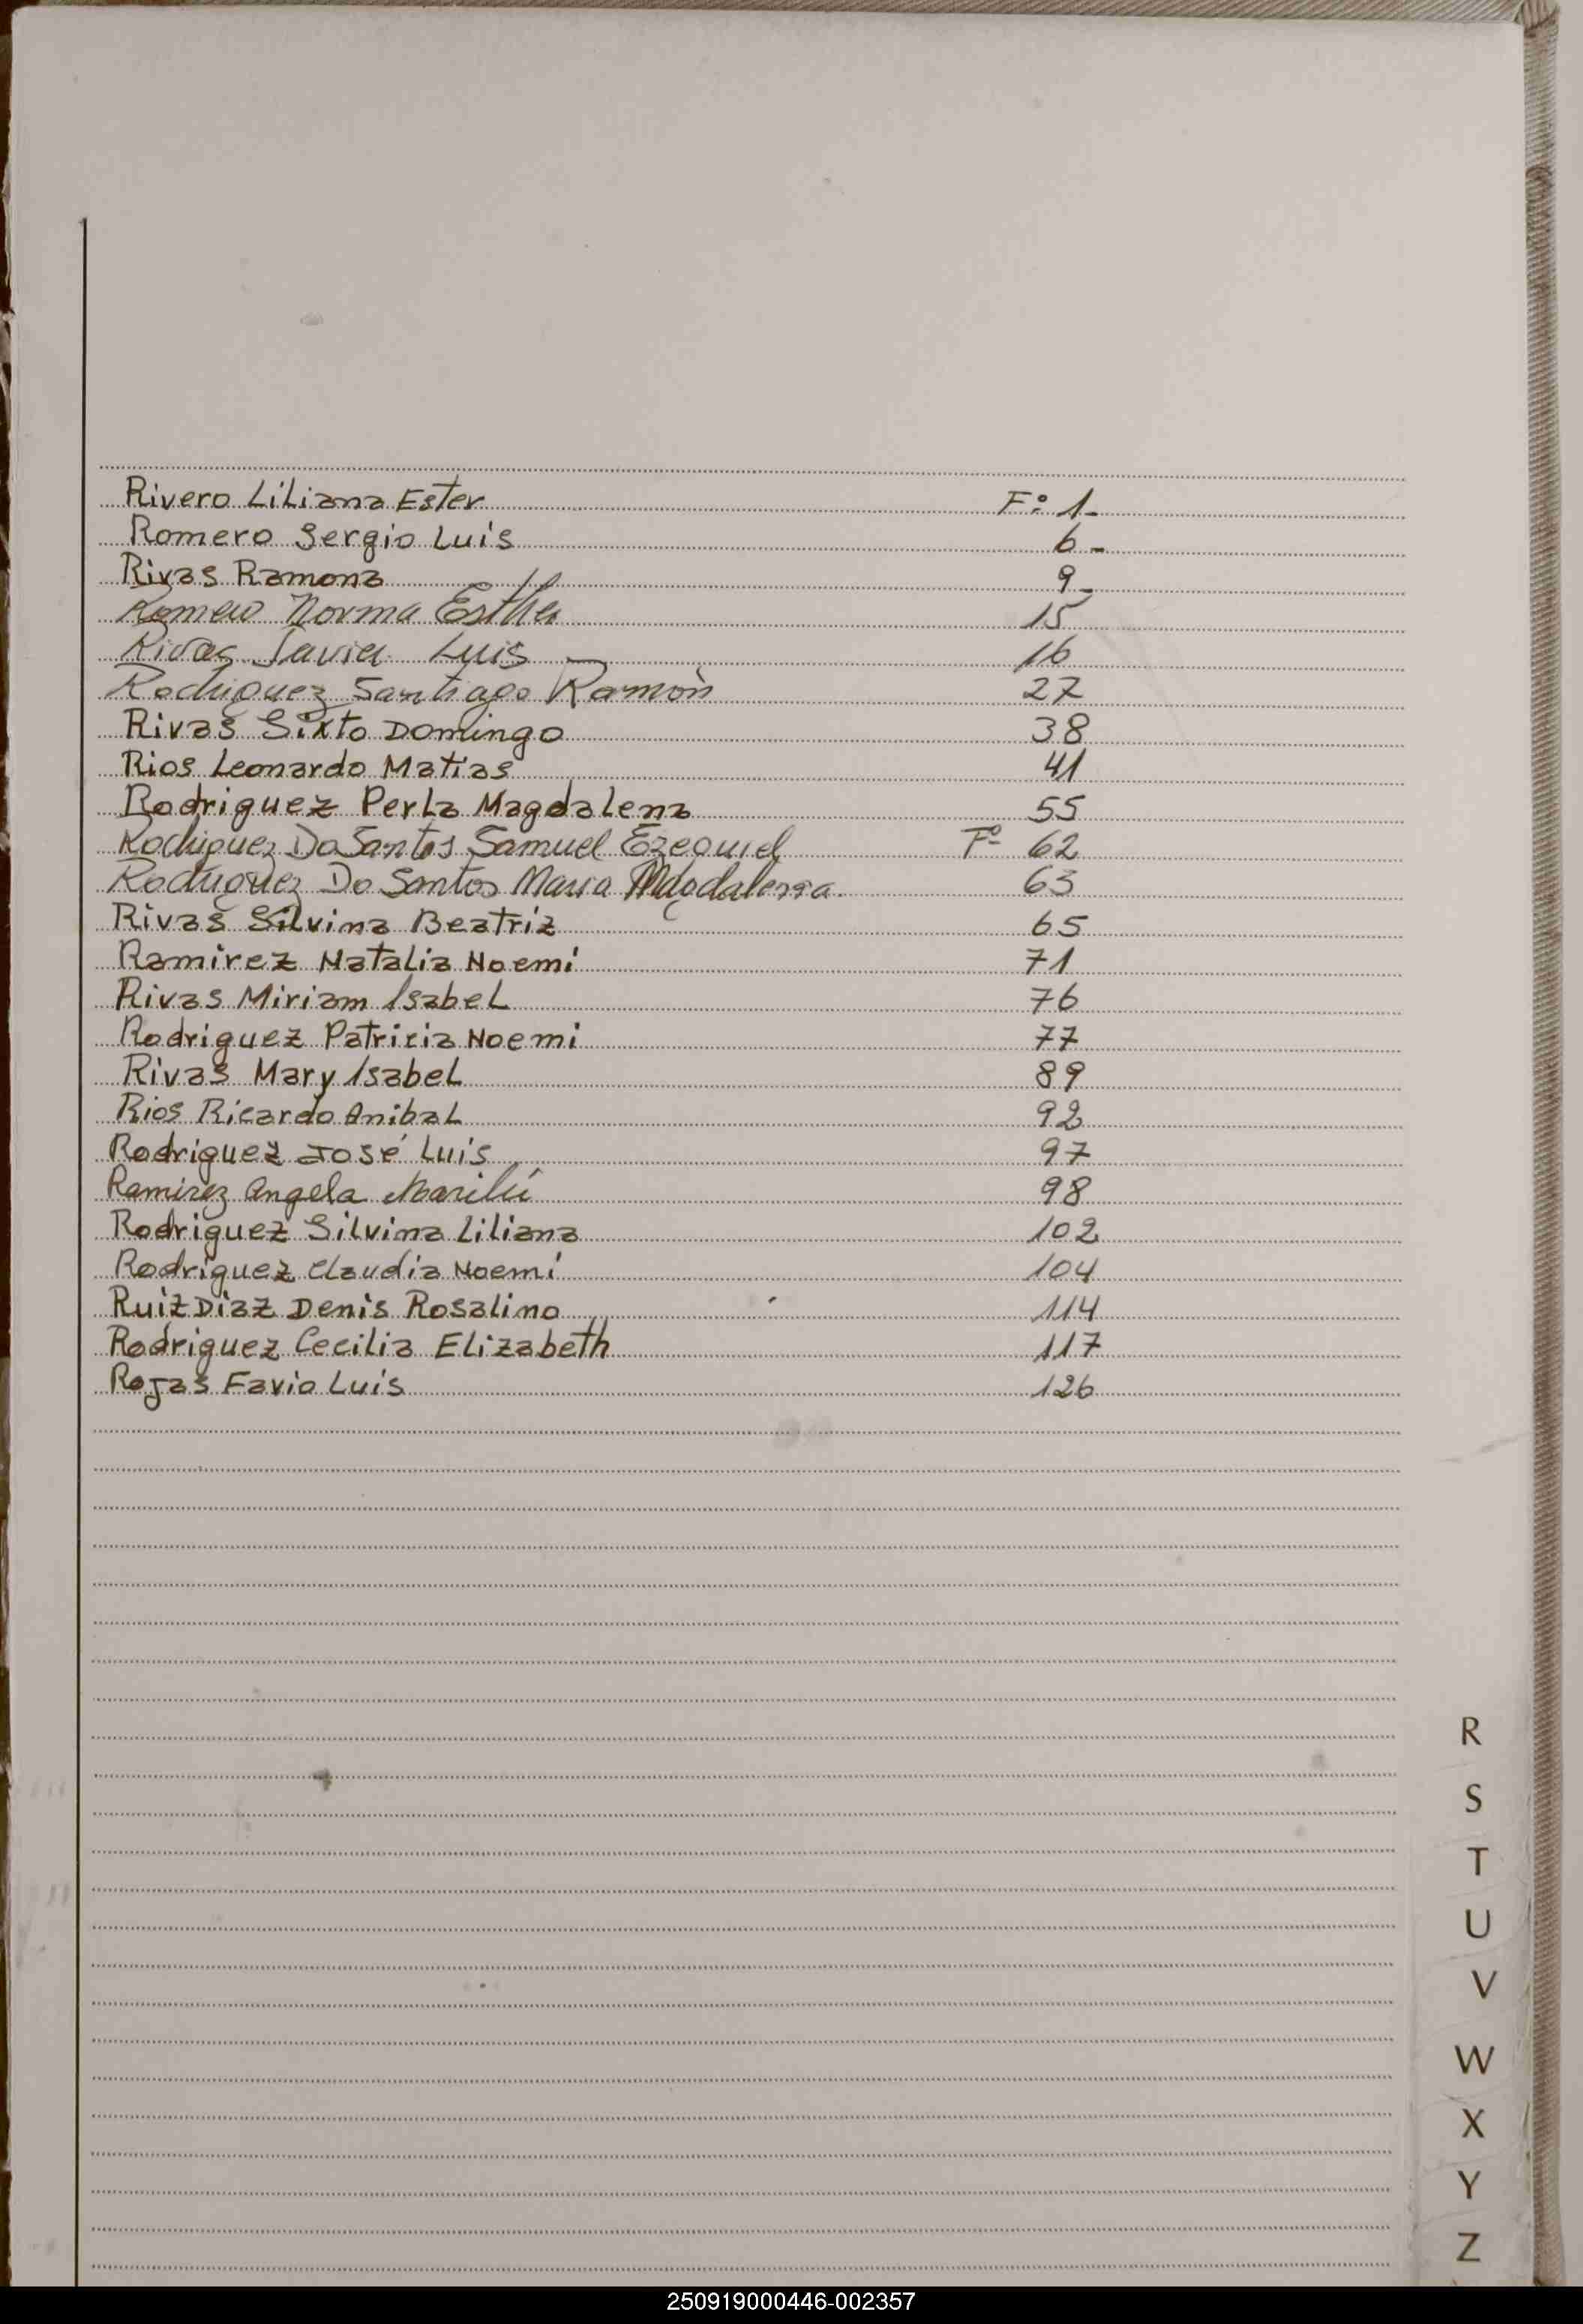 Rivero Liliana Ester F: 1-
Romero Sergio Luis 6-
Rivas Ramona 9-
Romero Norma Esther 15
Rivas Javier Luis 16
Rodriguez Santiago Ramòn 27
Rivas Sixto Domingo 38
Rios Leonardo Matias 41
Rodriguez Perla Magdalena 55
Rodriguez Do Santos Samuel Ezequiel Fº 62
Rodriguez Do Santos Maria Magdalena. 63
Rivas Silvina Beatriz 65
Ramirez Natalia Noemi 71
Rivas Miriam Isabel 76
Rodriguez Patricia Noemi 77
Rivas Mary Isabel 89
Rios Ricardo Anibal 92
Rodriguez José Luis 97
Ramirez Angela Marilú 98
Rodriguez Silvina Liliana 102
Rodriguez Claudia Noemi 104
Ruiz Diaz Denis Rosalino 114
Rodriguez Cecilia Elizabeth 117
Rojas Favio Luis 126
R
S
T
U
V
W
X
Y
Z
250919000446-002357